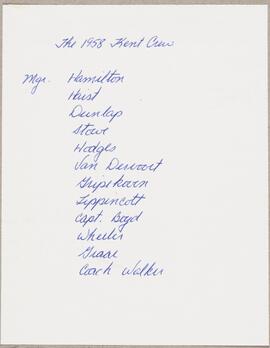 The 1958 Kent Crew
Mgr. Hamilton
Hust
Dunlap
Stowe
Hodges
Van Dervoort
Gripekoven
Lippincott
Capt. Boyd
Wheeler
Coach Walker